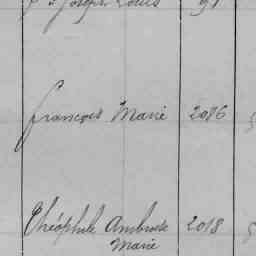 Joseph Louis 91
françois Marie 2076
Théophile Ambroise 2018
Marie